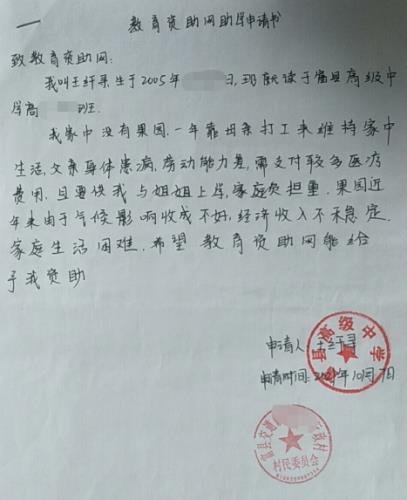 教育资助网助学申请书
致教育资助网:
我叫王纤寻生于2005年 日,现就读于富县高级中
学高 班.
我家中没有果园.一年靠母亲打工来维持家中
生活,父亲身体患病,劳动能力差,需支付较多医疗
费用,且要供我与姐姐上学,家庭负担重.果园近
年来由于气候影响收成不好,经济收入不稳定.
家庭生活困难.希望教育资助网能给
予我资助
申请人:王纤寻
申请时间:2021年10月7日
富县高级中学
富县交道 行政村
村民委员会